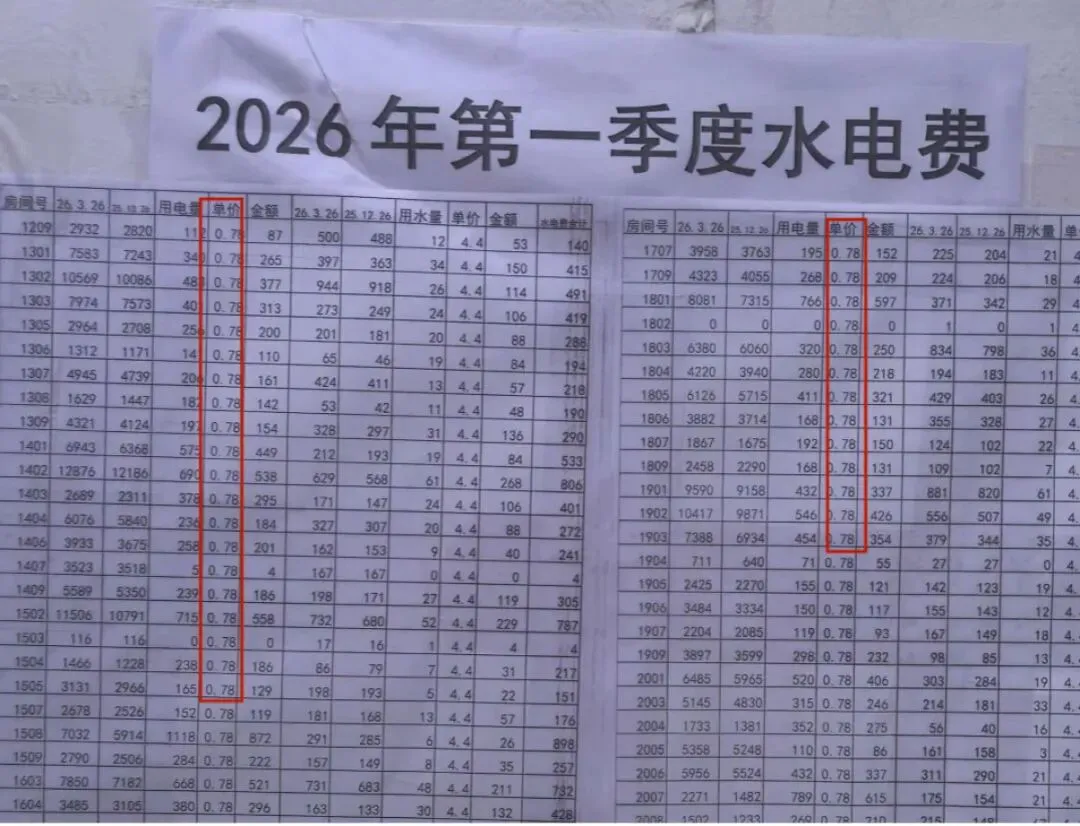 2026年第一季度水电费
房间号 26.3.26 25.12.26 用电量 单价 金额 26.3.26 25.12.26 用水量 单价 金额 水电费合计
1209 2932 2820 112 0.78 87 500 488 12 4.4 53 140
1301 7583 7243 340 0.78 265 397 363 34 4.4 150 415
1302 10569 10086 483 0.78 377 944 918 26 4.4 114 491
1303 7974 7573 401 0.78 313 273 249 24 4.4 106 419
1305 2964 2708 256 0.78 200 201 181 20 4.4 88 288
1306 1312 1171 141 0.78 110 65 46 19 4.4 84 194
1307 4945 4739 206 0.78 161 424 411 13 4.4 57 218
1308 1629 1447 182 0.78 142 53 42 11 4.4 48 190
1309 4321 4124 197 0.78 154 328 297 31 4.4 136 290
1401 6943 6368 575 0.78 449 212 193 19 4.4 84 533
1402 12876 12186 690 0.78 538 629 568 61 4.4 268 806
1403 2689 2311 378 0.78 295 171 147 24 4.4 106 401
1404 6076 5840 236 0.78 184 327 307 20 4.4 88 272
1406 3933 3675 258 0.78 201 162 153 9 4.4 40 241
1407 3523 3518 5 0.78 4 167 167 0 4.4 0 4
1409 5589 5350 239 0.78 186 198 171 27 4.4 119 305
1502 11506 10791 715 0.78 558 732 680 52 4.4 229 787
1503 116 116 0 0.78 0 17 16 1 4.4 4 4
1504 1466 1228 238 0.78 186 86 79 7 4.4 31 217
1505 3131 2966 165 0.78 129 198 193 5 4.4 22 151
1507 2678 2526 152 0.78 119 181 168 13 4.4 57 176
1508 7032 5914 1118 0.78 872 291 285 6 4.4 26 898
1509 2790 2506 284 0.78 222 157 149 8 4.4 35 257
1603 7850 7182 668 0.78 521 731 683 48 4.4 211 732
1604 3485 3105 380 0.78 296 163 133 30 4.4 132 428
房间号 26.3.26 25.12.26 用电量 单价 金额 26.3.26 25.12.26 用水量 单
1707 3958 3763 195 0.78 152 225 204 21 4
1709 4323 4055 268 0.78 209 224 206 18 4
1801 8081 7315 766 0.78 597 371 342 29 4
1802 0 0 0 0.78 0 1 0 1 4
1803 6380 6060 320 0.78 250 834 798 36 4
1804 4220 3940 280 0.78 218 194 183 11 4
1805 6126 5715 411 0.78 321 429 403 26 4
1806 3882 3714 168 0.78 131 355 328 27 4.
1807 1867 1675 192 0.78 150 124 102 22 4.
1809 2458 2290 168 0.78 131 109 102 7 4.
1901 9590 9158 432 0.78 337 881 820 61 4.
1902 10417 9871 546 0.78 426 556 507 49 4.
1903 7388 6934 454 0.78 354 379 344 35 4.
1904 711 640 71 0.78 55 27 27 0 4.
1905 2425 2270 155 0.78 121 142 123 19 4.
1906 3484 3334 150 0.78 117 155 143 12 4.
1907 2204 2085 119 0.78 93 167 149 18 4.
1909 3897 3599 298 0.78 232 98 85 13 4.
2001 6485 5965 520 0.78 406 303 284 19 4.
2003 5145 4830 315 0.78 246 214 181 33 4.
2004 1733 1381 352 0.78 275 56 40 16 4.
2005 5358 5248 110 0.78 86 161 158 3 4.
2006 5956 5524 432 0.78 337 311 290 21 4.
2007 2271 1482 789 0.78 615 175 154 21 4.
2008 1502 1233 269 0.78 210 215